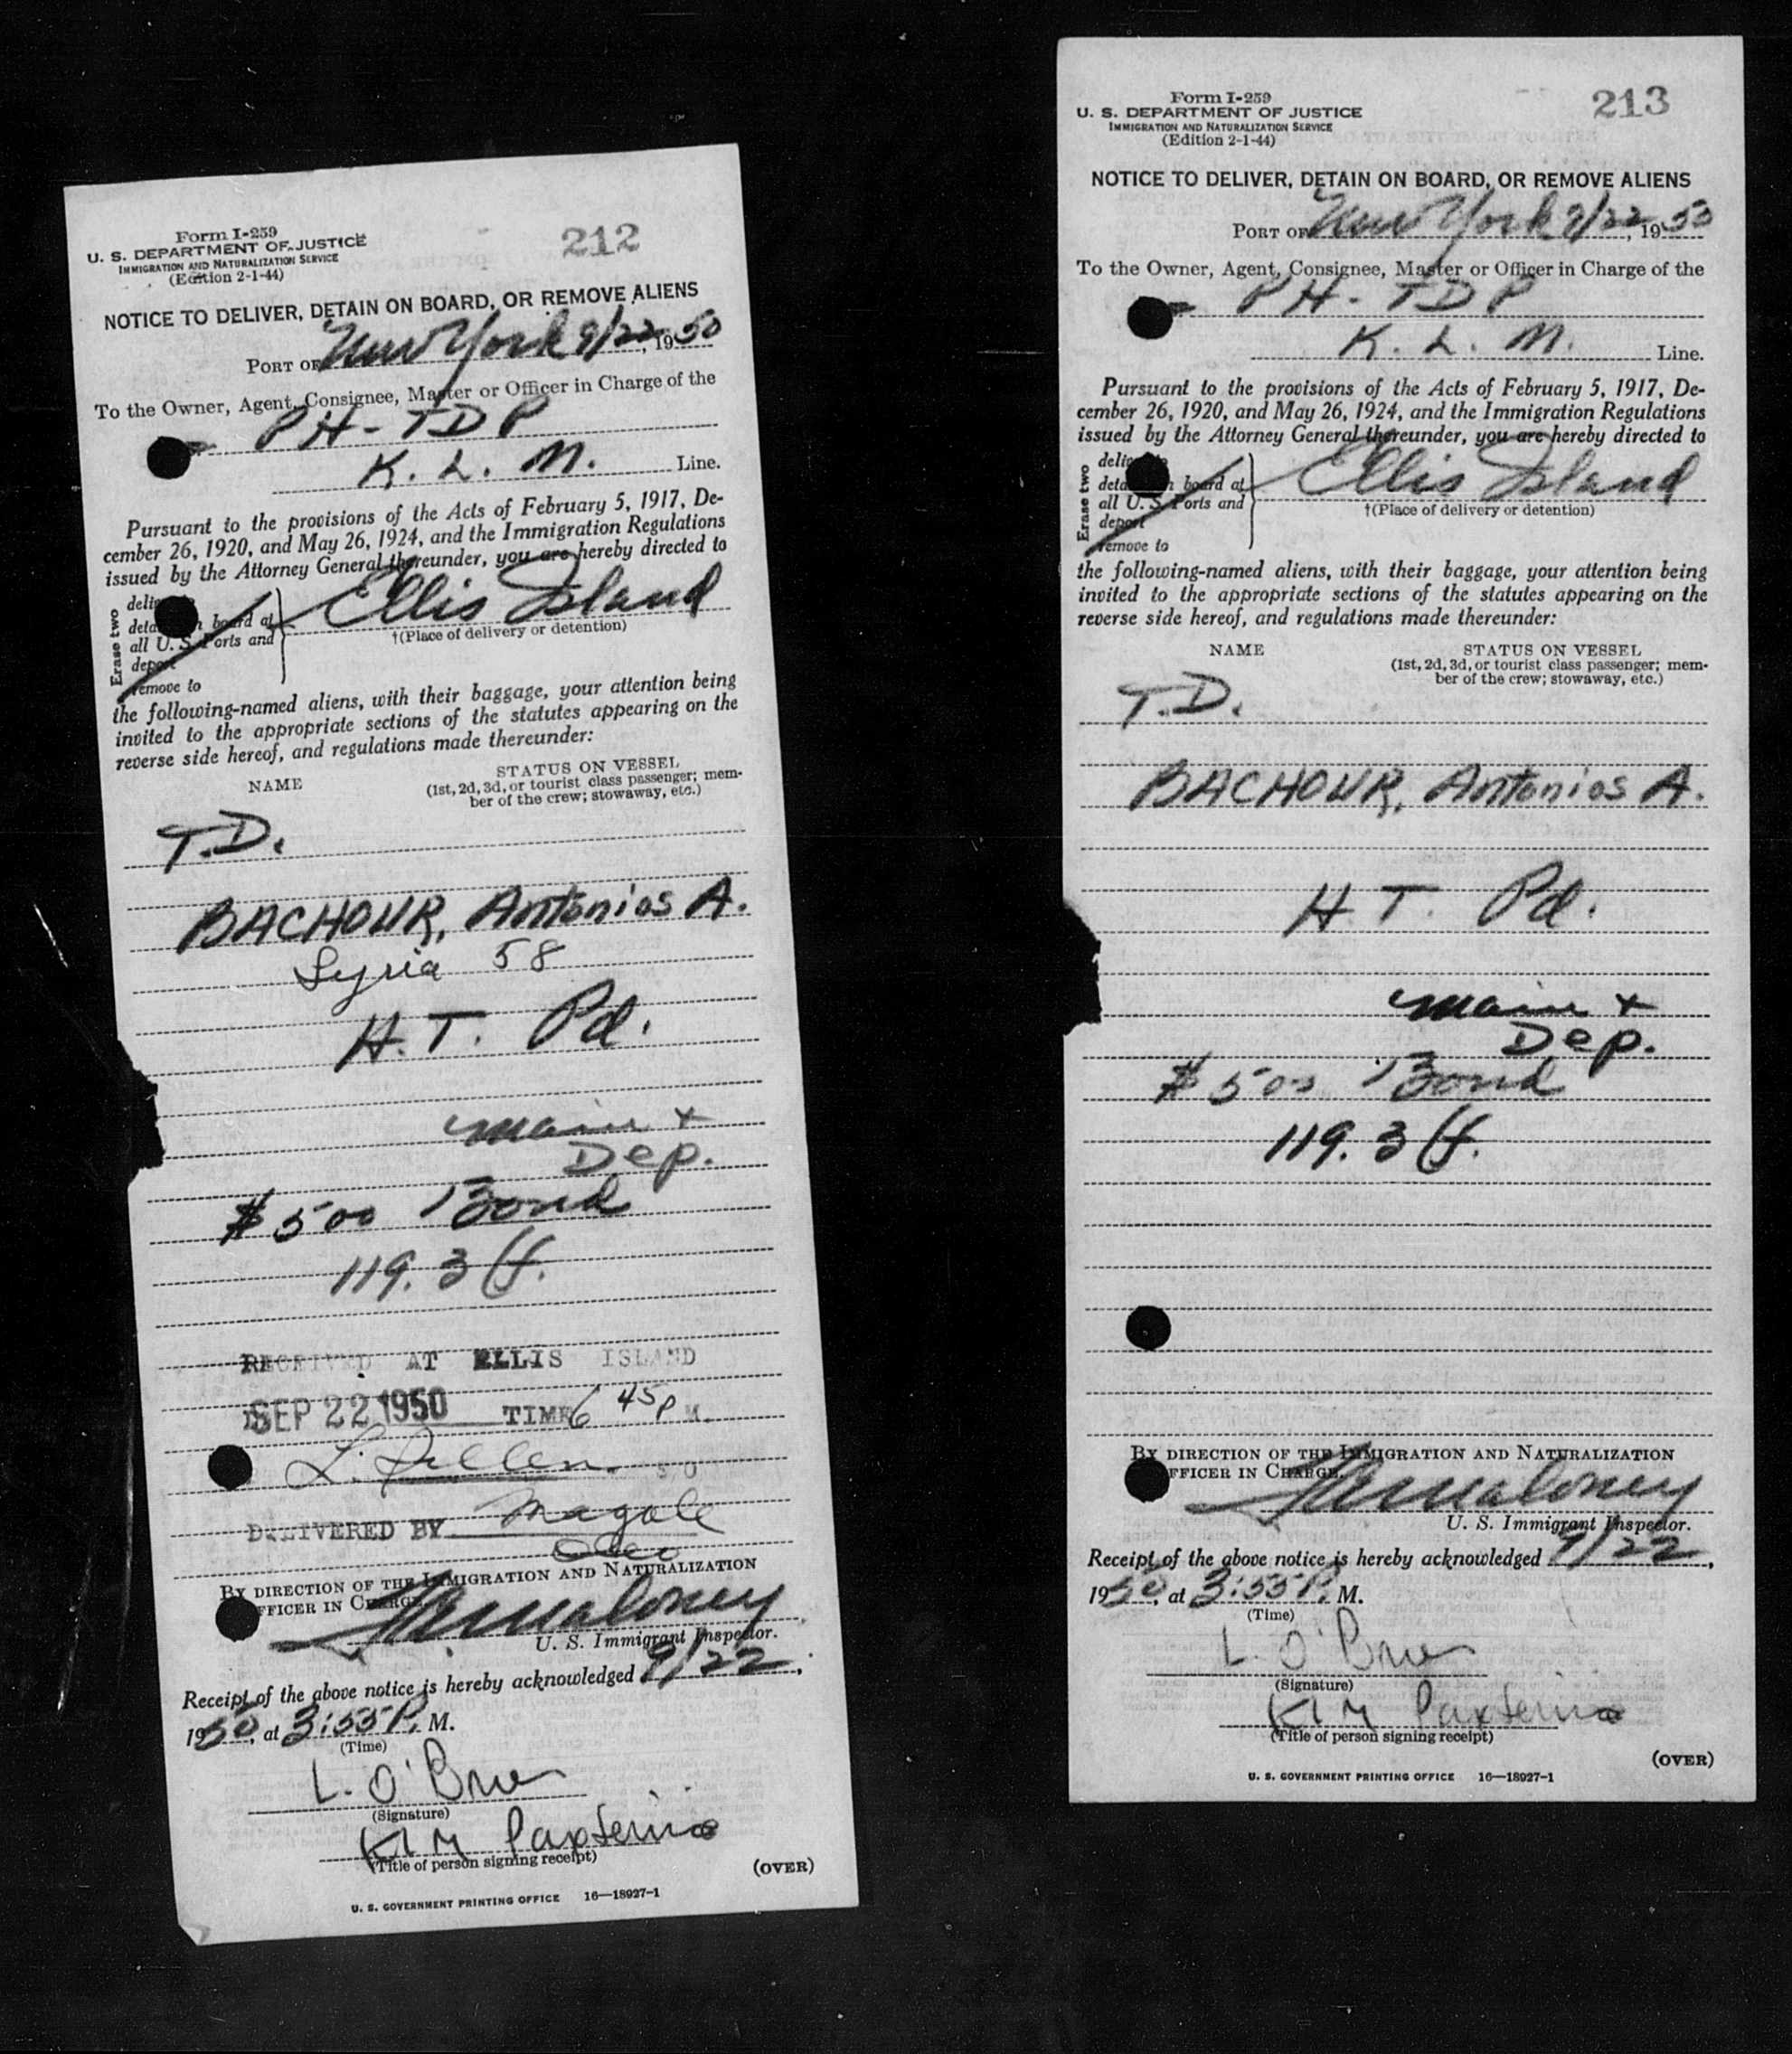 Form I-259
U. S. DEPARTMENT OF JUSTICE
IMMIGRATION AND NATURALIZATION SERVICE
(Edition 2-1-44)
212
NOTICE TO DELIVER, DETAIN ON BOARD, OR REMOVE ALIENS
PORT OF New York 9/22, 1950
To the Owner, Agent, Consignee, Master or Officer in Charge of the
PH-TDP
K. L. M. Line.
Pursuant to the provisions of the Acts of February 5, 1917, De-
cember 26, 1920, and May 26, 1924, and the Immigration Regulations
issued by the Attorney General thereunder, you are hereby directed to
Erase two
board at
all U. S. Ports and
deport
remove to
Ellis Island
†(Place of delivery or detention)
the following-named aliens, with their baggage, your attention being
invited to the appropriate sections of the statutes appearing on the
reverse side hereof, and regulations made thereunder:
NAME
STATUS ON VESSEL
(1st, 2d, 3d, or tourist class passenger; mem-
ber of the crew; stowaway, etc.)
T.D.
BACHOUR, Antonios A.
Syria 58
H.T. Pd.
Main +
Dep.
$500 Bond
119.3
RECEIVED AT ELLIS ISLAND
SEP 22 1950 TIME 6 45 P M.
L.
DELIVERED BY
BY DIRECTION OF THE IMMIGRATION AND NATURALIZATION
OFFICER IN CHARGE.
Maloney
U. S. Immigrant Inspector.
Receipt of the above notice is hereby acknowledged 9/22,
1950, at 3:55 P. M.
(Time)
L. O'Brien
(Signature)
KLM
(Title of person signing receipt)
(OVER)
U. S. GOVERNMENT PRINTING OFFICE 16—18927-1
Form I-259
U. S. DEPARTMENT OF JUSTICE
IMMIGRATION AND NATURALIZATION SERVICE
(Edition 2-1-44)
213
NOTICE TO DELIVER, DETAIN ON BOARD, OR REMOVE ALIENS
PORT OF New York 9/22, 1950
To the Owner, Agent, Consignee, Master or Officer in Charge of the
PH-TDP
K. L. M. Line.
Pursuant to the provisions of the Acts of February 5, 1917, De-
cember 26, 1920, and May 26, 1924, and the Immigration Regulations
issued by the Attorney General thereunder, you are hereby directed to
Erase two
board at
all U. S. Ports and
deport
remove to
Ellis Island
†(Place of delivery or detention)
the following-named aliens, with their baggage, your attention being
invited to the appropriate sections of the statutes appearing on the
reverse side hereof, and regulations made thereunder:
NAME
STATUS ON VESSEL
(1st, 2d, 3d, or tourist class passenger; mem-
ber of the crew; stowaway, etc.)
T.D.
BACHOUR, Antonios A.
H.T. Pd.
Main +
Dep.
$500 Bond
119.3
BY DIRECTION OF THE IMMIGRATION AND NATURALIZATION
OFFICER IN CHARGE.
Maloney
U. S. Immigrant Inspector.
Receipt of the above notice is hereby acknowledged 9/22,
1950, at 3:55 P. M.
(Time)
L. O'Brien
(Signature)
KLM
(Title of person signing receipt)
(OVER)
U. S. GOVERNMENT PRINTING OFFICE 16—18927-1